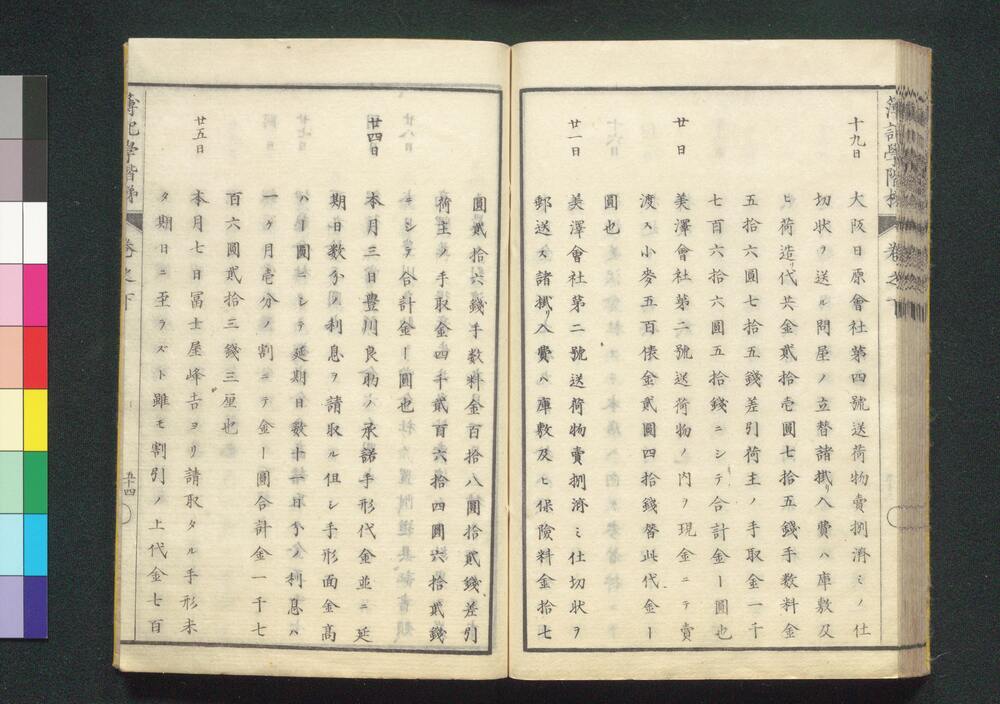 簿記學階梯 卷之下
十九日 大阪日原會社第四號送荷物賣捌濟ミノ仕
切狀ヲ送ル問屋ノ立替諸掛リ入費ハ庫敷及
ヒ荷造リ代共金貳拾壱圓七拾五錢手数料金
五拾六圓七拾五錢差引荷主ノ手取金一千
七百六拾六圓五拾錢ニシテ合計金ー圓也
廿日 美澤會社第二號送荷物ノ内ヲ現金ニテ賣
渡ス小麥五百俵金貳圓四拾錢替此代金ー
圓也
廿一日 美澤會社第二號送荷物賣捌濟ミ仕切狀ヲ
郵送ス諸掛リ入費ハ庫敷及ヒ保險料金拾七
圓貳拾六錢手数料金百拾八圓拾貳錢差引
荷主ノ手取金四千貳百六拾四圓六拾貳錢
ニシテ合計金ー圓也
廿四日 本月三日豊川良助ノ承諾手形代金並ニ延
期日数分ノ利息ヲ請取ル但シ手形面金高
ハー圓ニシテ延期日数十一日分ノ利息ハ
一ヶ月壱分ノ割ニテ金ー圓合計金一千七
百六圓貳拾三錢三厘也
廿五日 本月七日冨士屋峰吉ヨリ請取タル手形未
タ期日ニ至ラズト雖モ割引ノ上代金七百
簿記學階梯 卷之下 五十四